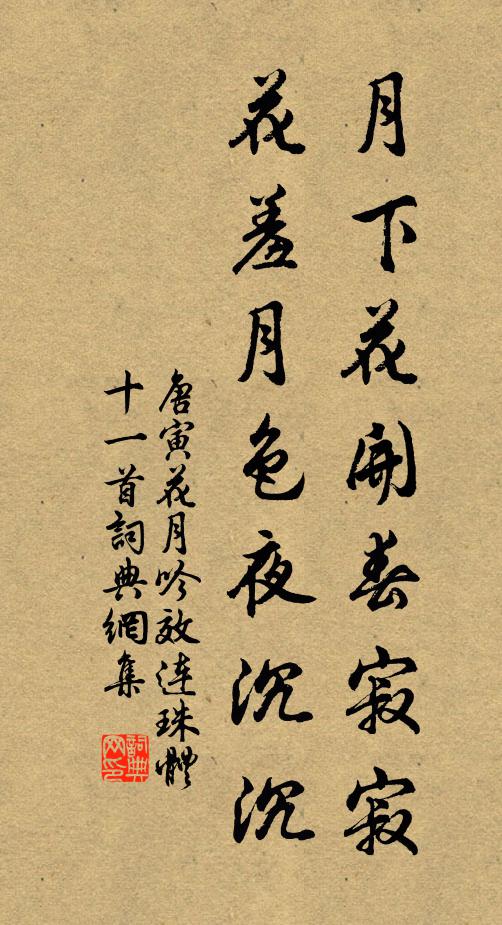 月下花開春寂寂
花羞月色夜沉沉
唐寅花月吟效連珠體
十一首詞典網集
詞典网印